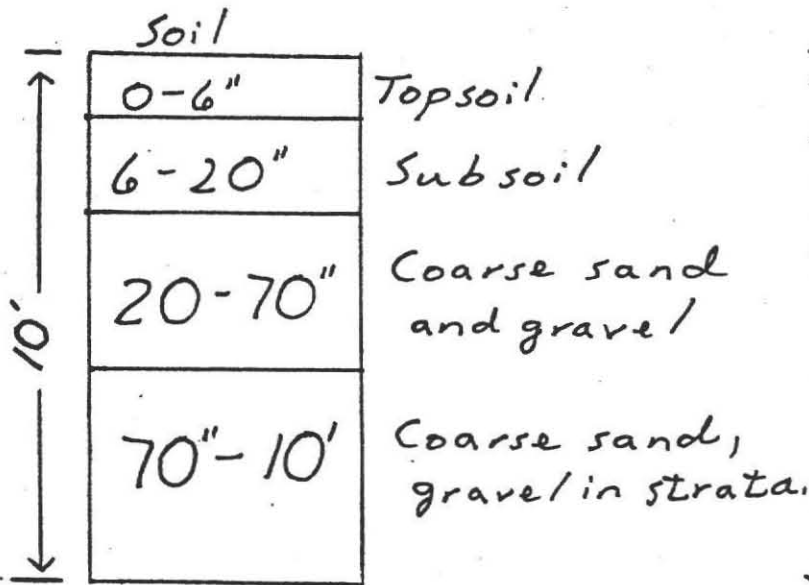 Soil
0-6" Topsoil
6-20" Subsoil
20-70" Coarse sand
and gravel
10'
70"-10' Coarse sand,
gravel in strata.